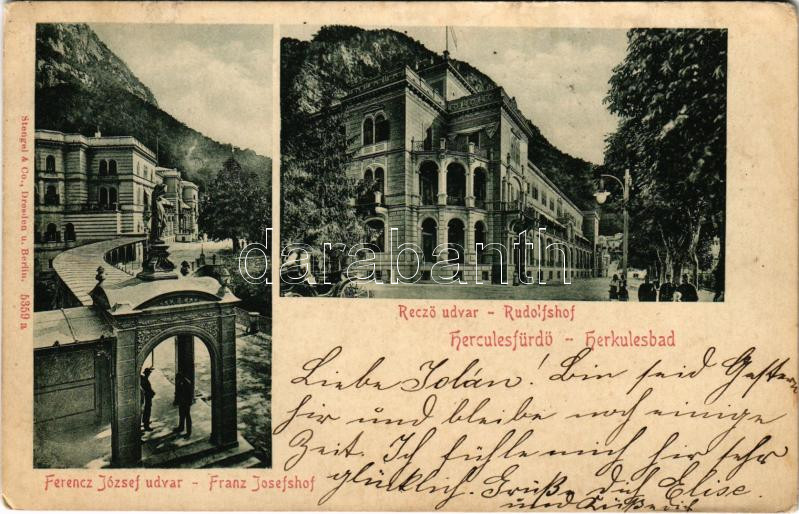 Stengel & Co., Dresden u. Berlin. 5359 a
darabanth
Reczö udvar - Rudolfshof
Herculesfürdö - Herkulesbad
Ferencz József udvar - Franz Josefshof
Liebe Jolán! Bin seid Gestern
hir und bleibe noch einige
Zeit. Ich fühle mich hir sehr
glücklich. Grüße dich Elise.
und Küße dich